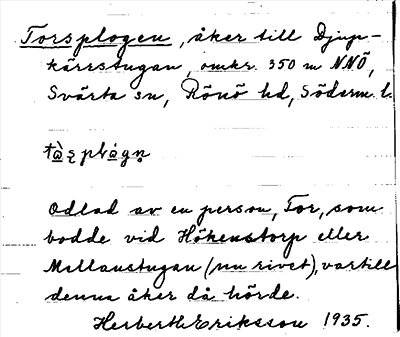 Torsplogen, åker till Djup-
kärrstugan, omkr. 350 m NNÖ,
Svärta sn, Rönö hd, Söderm. l.
Odlad av en person, Tor, som
bodde vid Hökenstorp eller
Mellanstugan (nu rivet), vartill
denna åker då hörde.
Herbert Eriksson 1935.